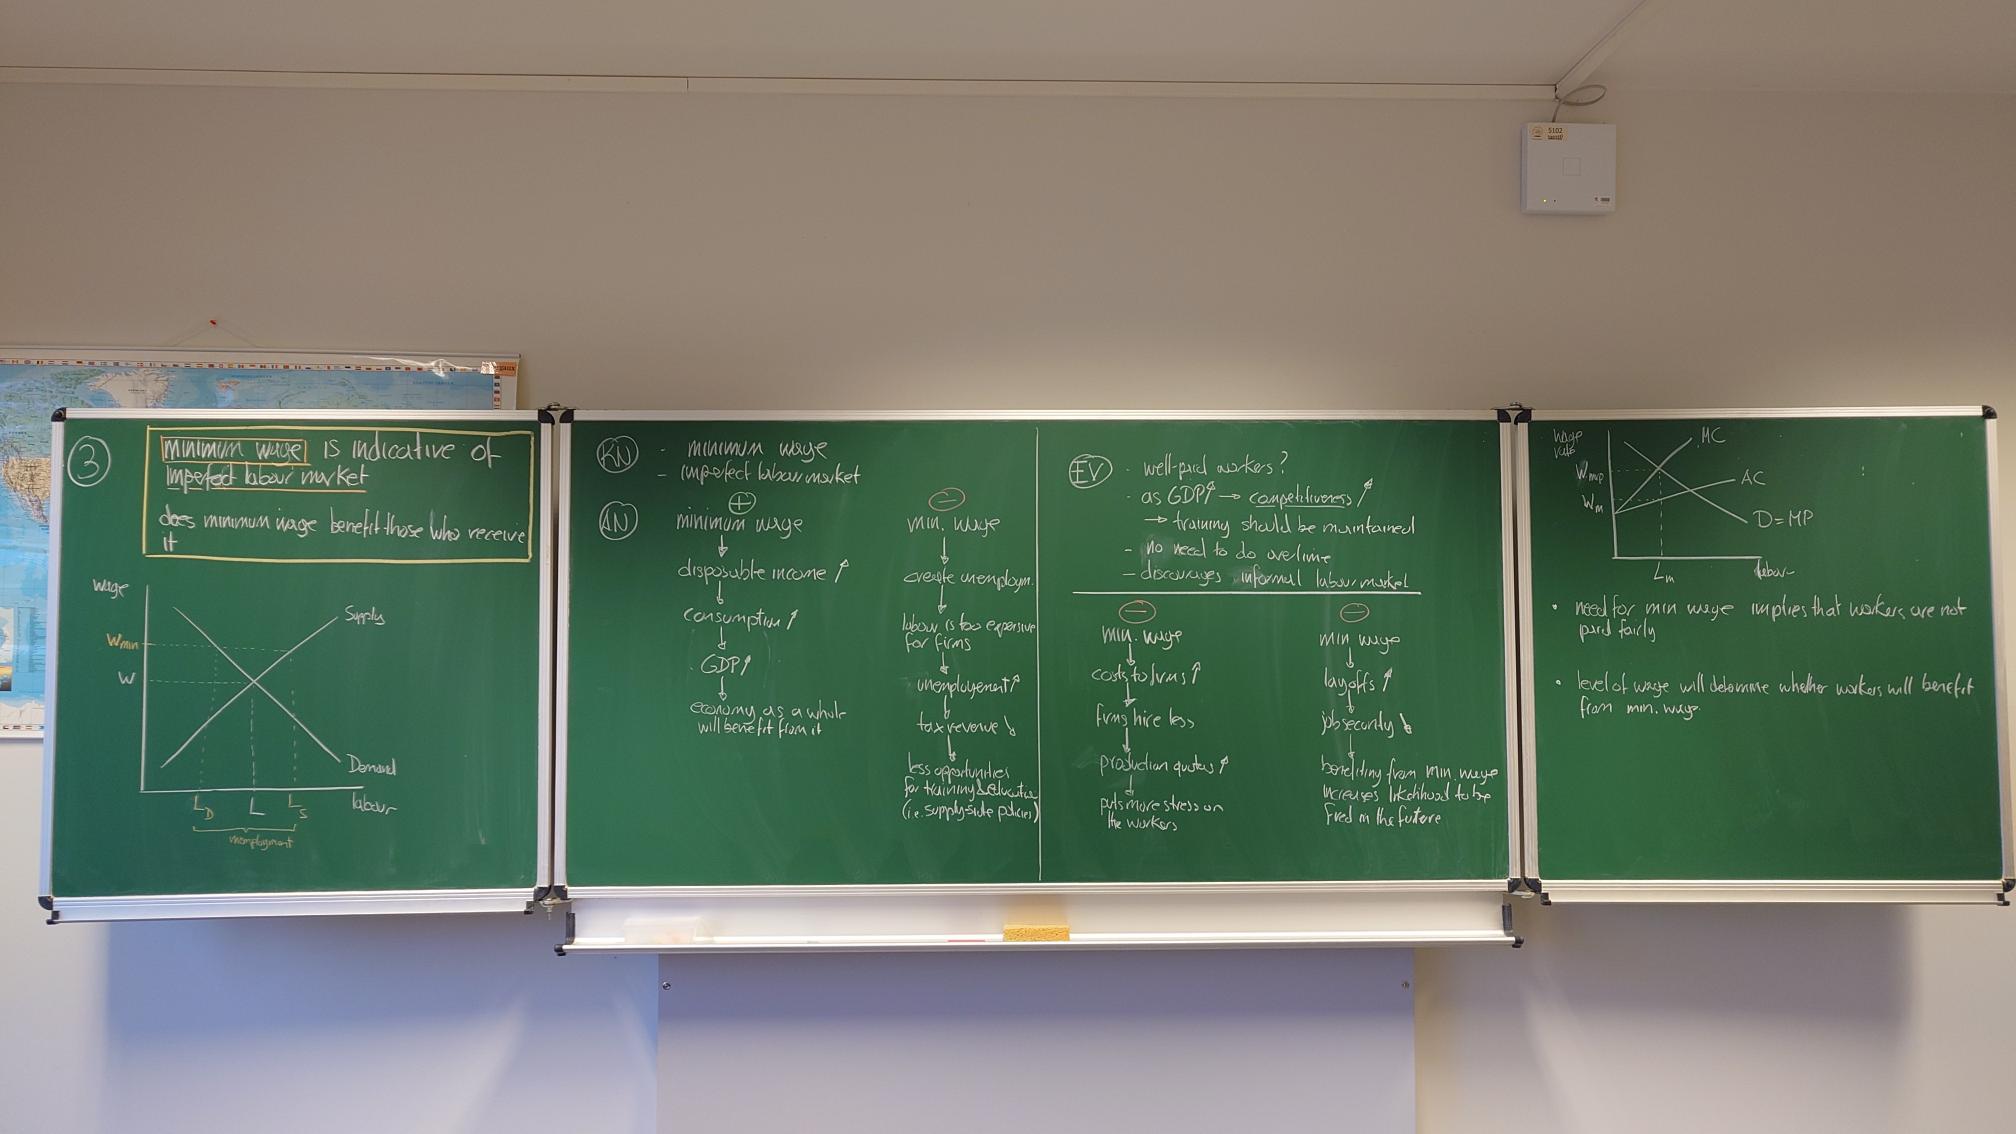 3
minimum wage is indicative of
imperfect labour market
does minimum wage benefit those who receive
it
wage
Supply
Wmin
W
Demand
LD
L
LS
labour
unemployment
KN
- minimum wage
- imperfect labour market
AN
+
minimum wage
↓
disposable income ↑
↓
consumption ↑
↓
GDP↑
↓
economy as a whole
will benefit from it
-
min. wage
↓
create unemploym.
↓
labour is too expensive
for firms
↓
unemployement↑
↓
tax revenue ↓
↓
less opportunities
for training & education
(i.e. supply-side policies)
EV
- well-paid workers?
- as GDP↑ → competitiveness ↑
→ training should be maintained
- no need to do overtime
- discourages informal labour market
-
min. wage
↓
costs to firms ↑
↓
firms hire less
↓
production quotas ↑
↓
puts more stress on
the workers
-
min wage
↓
layoffs ↑
↓
job security ↓
↓
benefiting from min. wage
increases likelihood to be
fired in the future
wage
rate
MC
Wmrp
AC
Wm
D=MP
Lm
labour
• need for min wage implies that workers are not
paid fairly
• level of wage will determine whether workers will benefit
from min. wage.
5102